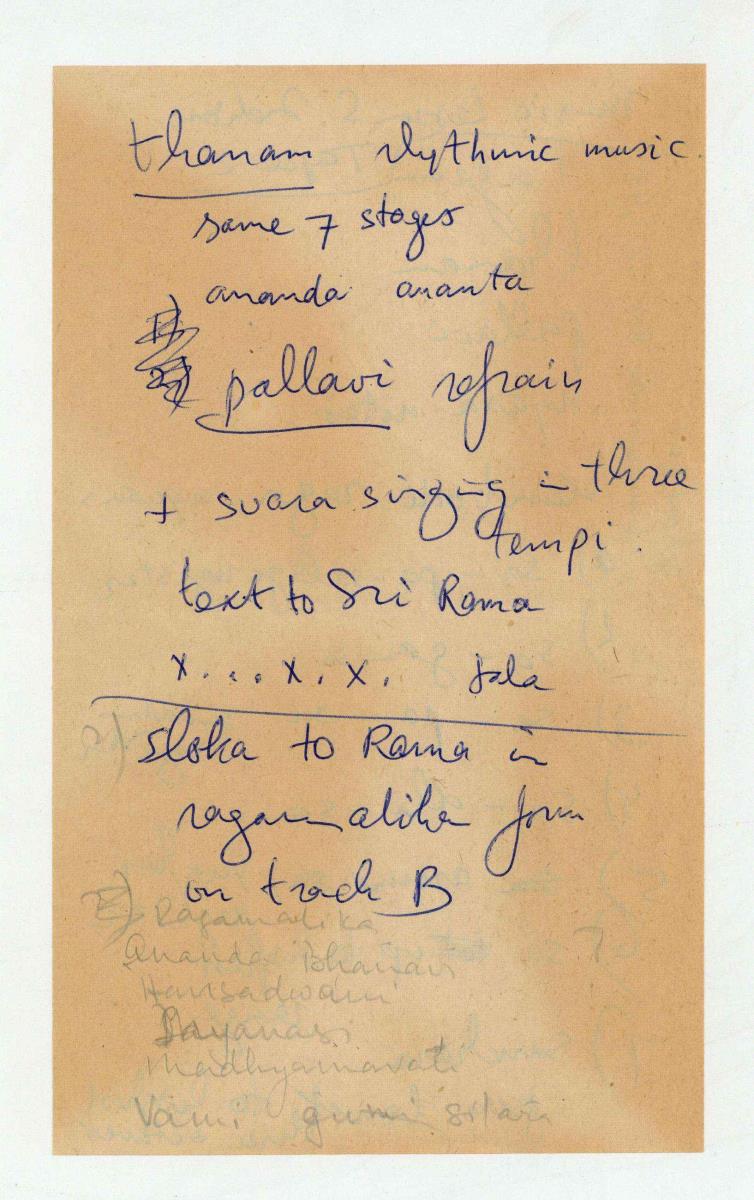 thanam rhythmic music.
same 7 stages
ananda ananta
pallavi refrain
+ svara singing in three
tempi.
text to Sri Rama
x . . . x . x . tala
sloka to Rama in
ragamalika form
on track B
Ragamalika
Ananda Bhairavi ?
Hamsadwani
Madhyamavati